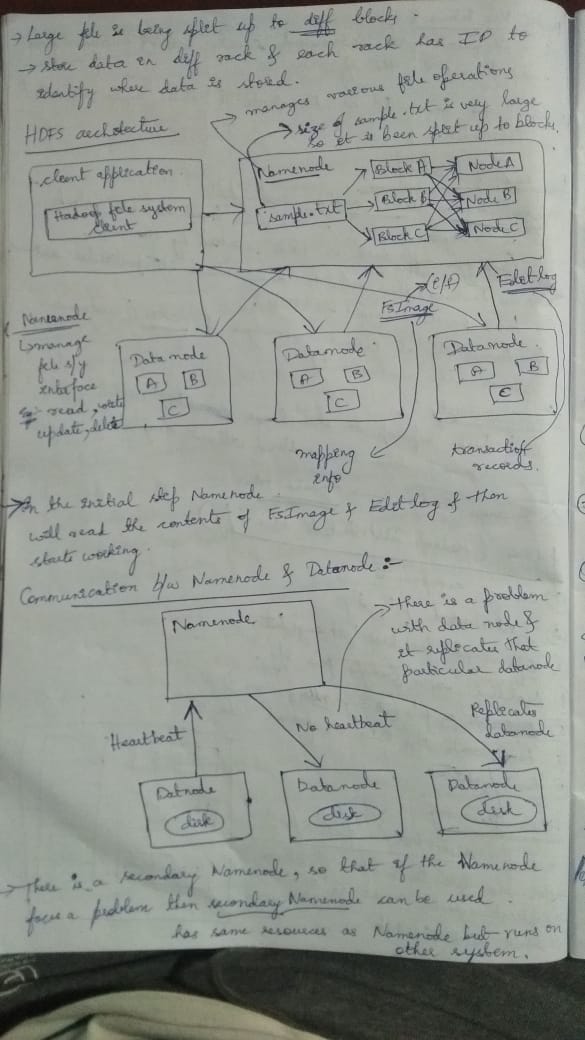 → Large file is being split up to diff blocks.
→ store data in diff rack & each rack has ID to
identify where data is stored.
→ manages various file operations
HDFS architecture
→ size of sample.txt is very large
so it is been split up to blocks.
client application
Hadoop file system
client
Namenode
sample.txt
Block A
Block B
Block C
Node A
Node B
Node C
(i/p)
FsImage
Editlog
Namenode
↳ manage
file s/y
interface
Eg:- read, write
update, delete
Datanode
A B
C
Datanode
A B
C
Datanode
A B
C
mapping
info
transaction
records.
→ In the initial step Namenode
will read the contents of FsImage & Editlog & then
starts working.
Communication b/w Namenode & Datanode :-
Namenode
→ there is a problem
with data node &
it replicates that
particular datanode
Heartbeat
No heartbeat
Replicates
datanode
Datnode
disk
Datanode
disk
Datanode
disk
→ There is a secondary Namenode, so that if the Namenode
face a problem then secondary Namenode can be used.
has same resources as Namenode but runs on
other system.